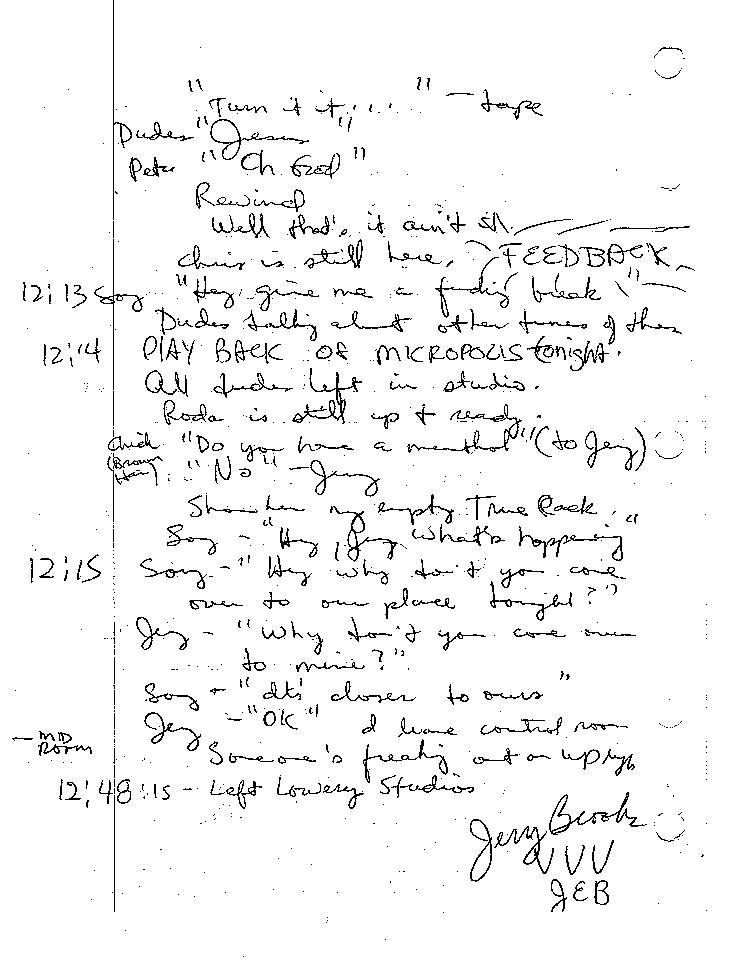 "Turn it it...." - tape
Dudes "Jesus"
Peter "Oh God"
Rewind
Well that's it ain't
Chris is still here. FEEDBACK
12:13 "Hey give me a break"
Dudes talking about other tunes of
12:14 PLAY BACK OF MICROPOLIS tonight.
All dudes left in studio.
is still up + ready.
Chick "Do you have a menthol" (to Jerry)
(Brown Hair) "No" - Jerry
Show her my empty True Pack.
- "Hey, Jerry, what's happening"
12:15 - "Hey why don't you come
over to our place tonight?"
Jerry - "Why don't you come over
to mine?"
- "It's closer to ours"
Jerry - "OK" I leave control room
- MID ROOM Someone's freaking out on
12:48:15 - Left Lowery Studios
Jerry Brooks
JEB